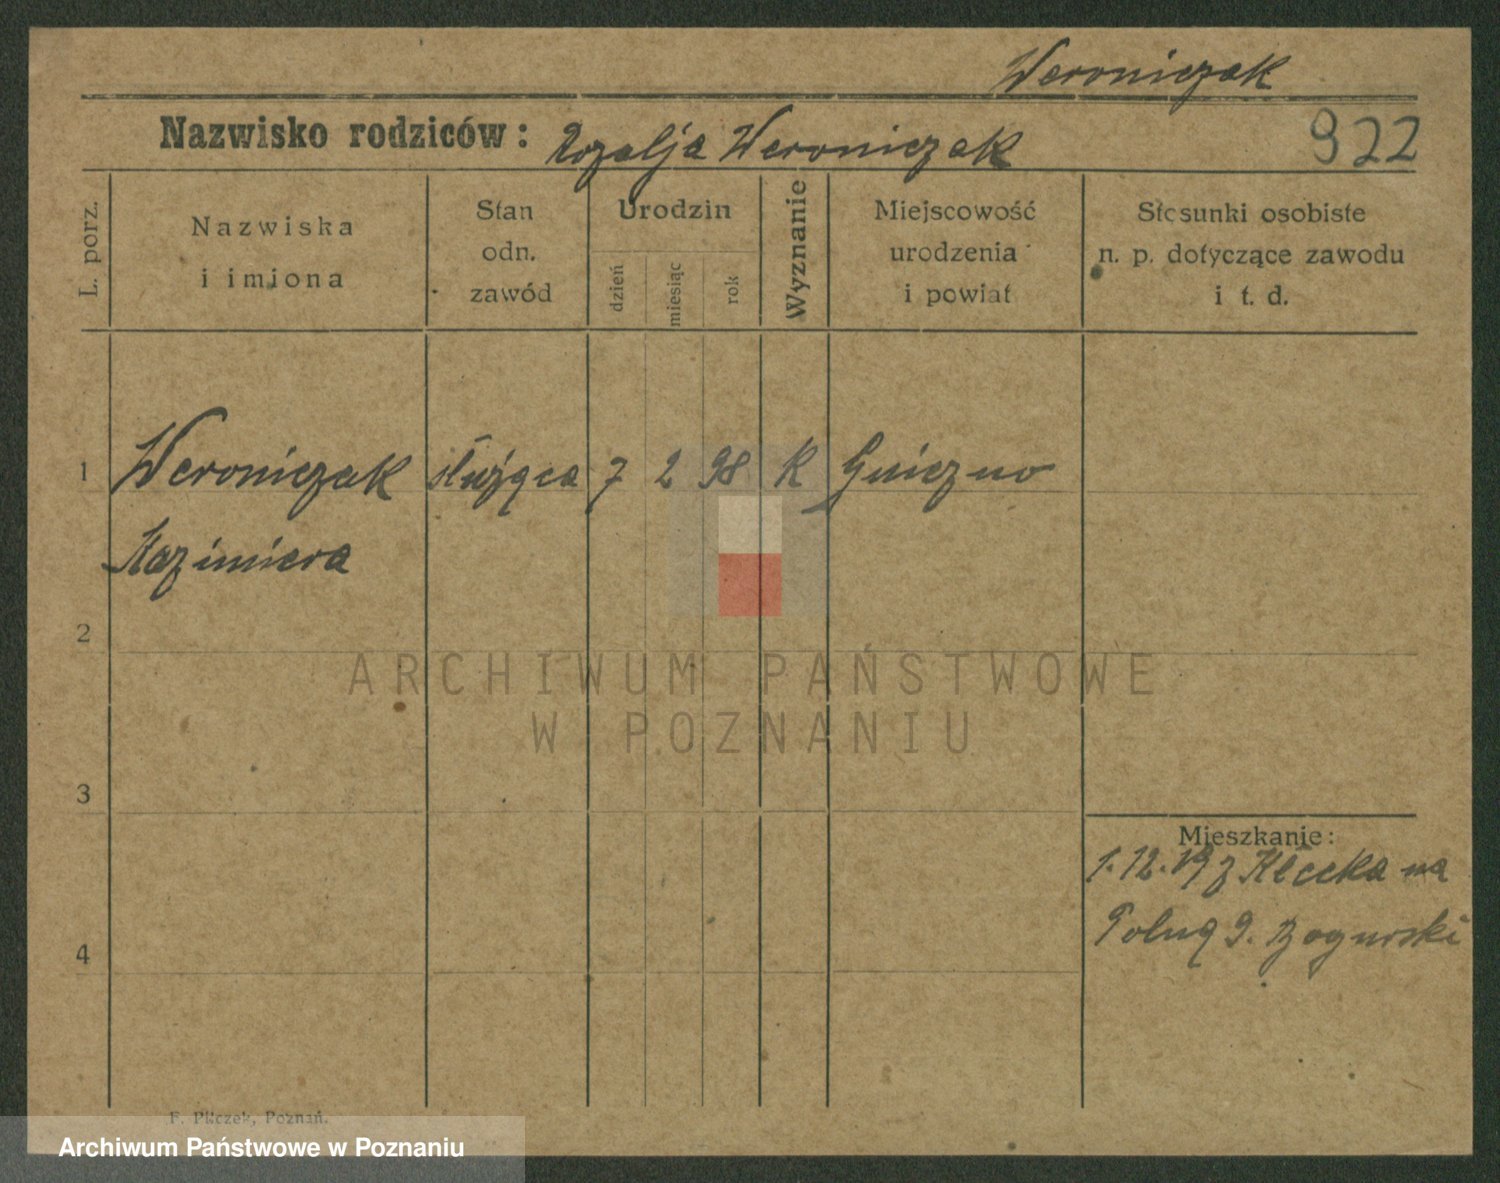 Weroniczak
Nazwisko rodziców: Rozalja Weroniczak
922
L. porz.
Nazwiska
i imiona
Stan
odn.
zawód
Urodzin
dzień
miesiąc
rok
Wyznanie
Miejscowość
urodzenia
i powiat
Stosunki osobiste
n. p. dotyczące zawodu
i t. d.
1 Weroniczak służąca 7 2 98 K Gniezno
Kazimiera
2
ARCHIWUM PAŃSTWOWE
W POZNANIU
3
Mieszkanie:
1.12.19 z Kłecka na
Polną 9.
4
F. Pilczek, Poznań.
Archiwum Państwowe w Poznaniu